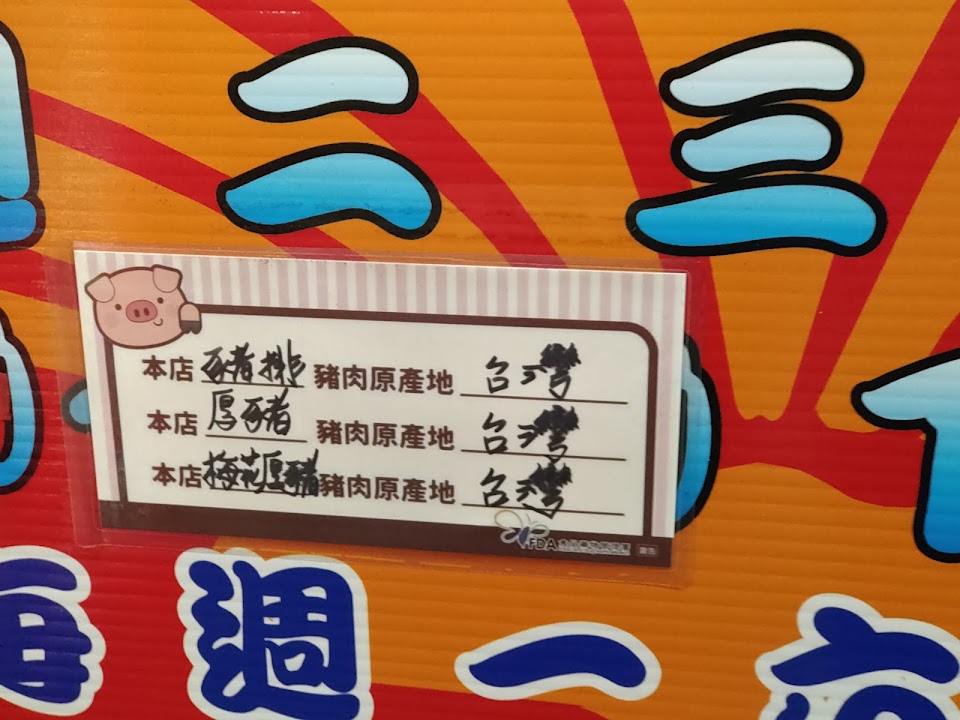 二 三
本店豬排豬肉原產地台灣
本店厚豬豬肉原產地台灣
本店梅花厚豬豬肉原產地台灣
FDA
每週一